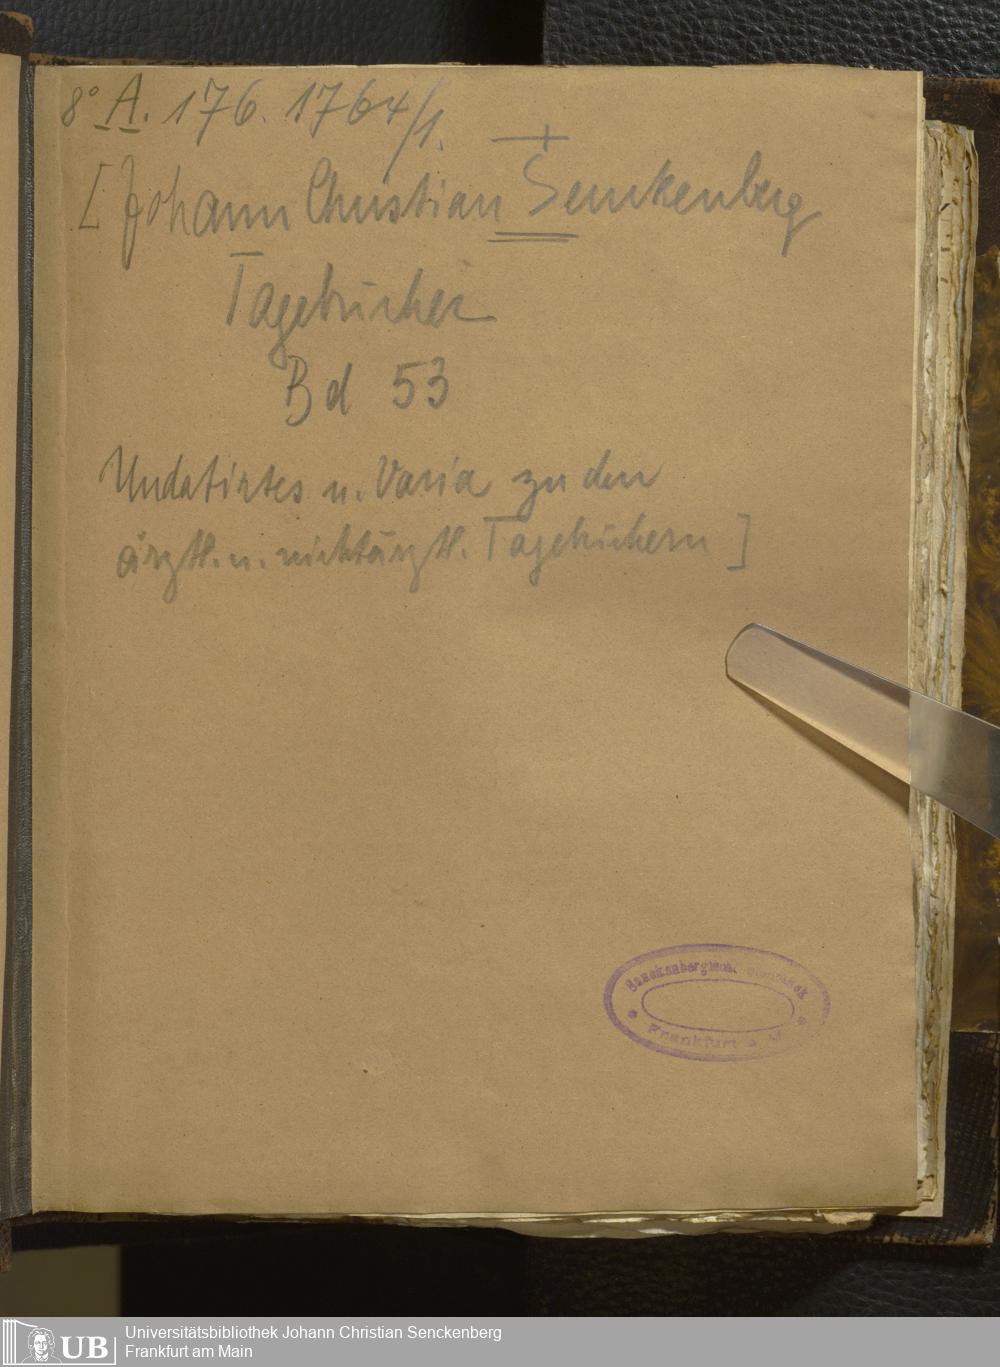 8° A. 176. 1764/1.
[Johann Christian Senckenberg
Tagebücher
Bd 53
Undatirtes u. Varia zu den
ärztl. u. nichtärztl. Tagebüchern]
Senckenbergische Bibliothek
Frankfurt a. M.
UB
Universitätsbibliothek Johann Christian Senckenberg
Frankfurt am Main